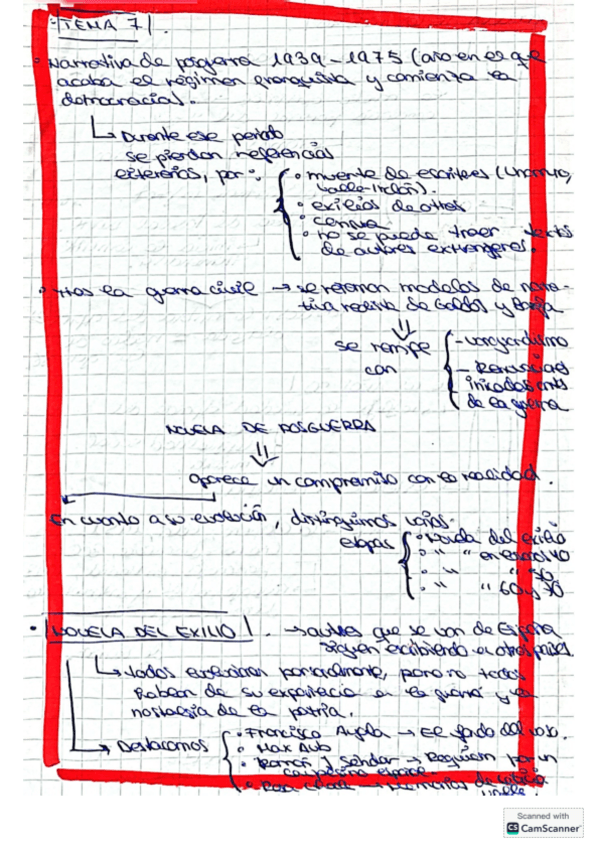 TEMA 7
• Narrativa de posguerra 1939-1975 (año en el que
acaba el régimen franquista y comienza la
democracia).
↳ Durante ese periodo
se pierden referencias
externas, por:
• muerte de escritores (Unamuno,
Valle-Inclán).
• exilios de otros
• censura
• no se puede traer textos
de autores extrangeros.
• Tras la guerra civil → se retoman modelos de narra-
tiva realista de Galdós y Baroja
⇓
se rompe
con
- vanguardismo
- Renovaciones
iniciadas antes
de la guerra
NOVELA DE POSGUERRA
⇓
Aparece un compromiso con la realidad.
En cuanto a su evolución, distinguimos varias
etapas
• Novela del exilio
• " " en español 40
• " " 50
• " " 60 y 70
• NOVELA DEL EXILIO. → autores que se van de España
siguen escribiendo en otros países.
↳ todos evolucionan , pero no todos
hablan de su experiencia en la guerra y la
nostalgia de la patria.
→ Destacamos
• Francisco Ayala → El
• Max Aub
• Ramón J Sender → Requiem por un
campesino español.
• Rosa Chacel → Memorias de Leticia
Valle.
Scanned with
CS CamScanner